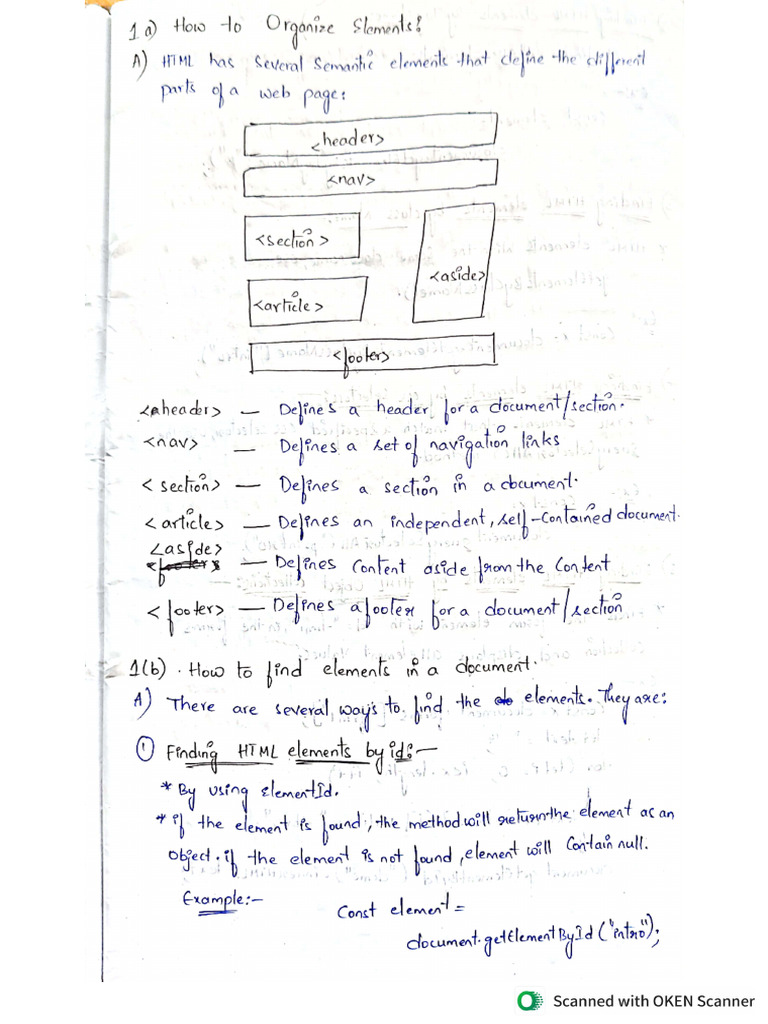 1 a) How to Organize Elements?
A) HTML has several semantic elements that define the different
parts of a web page:
<header>
<nav>
<section>
<aside>
<article>
<footer>
<header> — Defines a header for a document/section.
<nav> — Defines a set of navigation links
<section> — Defines a section in a document.
<article> — Defines an independent, self-contained document.
<aside>
— Defines content aside from the content
<footer> — Defines a footer for a document/section
1(b). How to find elements in a document.
A) There are several ways to find the elements. They are:
① Finding HTML elements by id:—
* By using ElementId.
* if the element is found, the method will return the element as an
object. if the element is not found, element will contain null.
Example:—
Const element =
document.getElementById("intro");
Scanned with OKEN Scanner